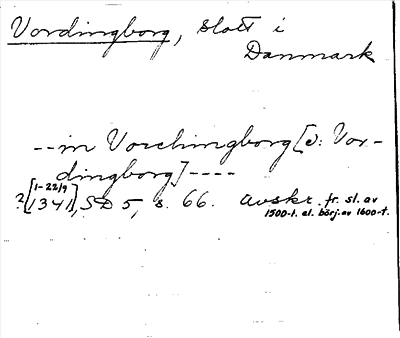 Vordingborg, slott i
Danmark
--in Vorchingborg [ɔ: Vor-
dingborg]----
?[1-22/9
1341], SD 5, s. 66. Avskr. fr. sl. av
1500-t. el. börj. av 1600-t.